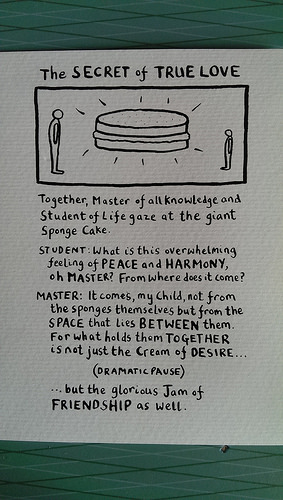 The SECRET of TRUE LOVE
Together, Master of all Knowledge and
Student of Life gaze at the giant
Sponge Cake.
STUDENT: What is this overwhelming
feeling of PEACE and HARMONY,
oh MASTER? From where does it come?
MASTER: It comes, my Child, not from
the sponges themselves but from the
SPACE that lies BETWEEN them.
For what holds them TOGETHER
is not just the Cream of DESIRE...
(DRAMATIC PAUSE)
...but the glorious Jam of
FRIENDSHIP as well.